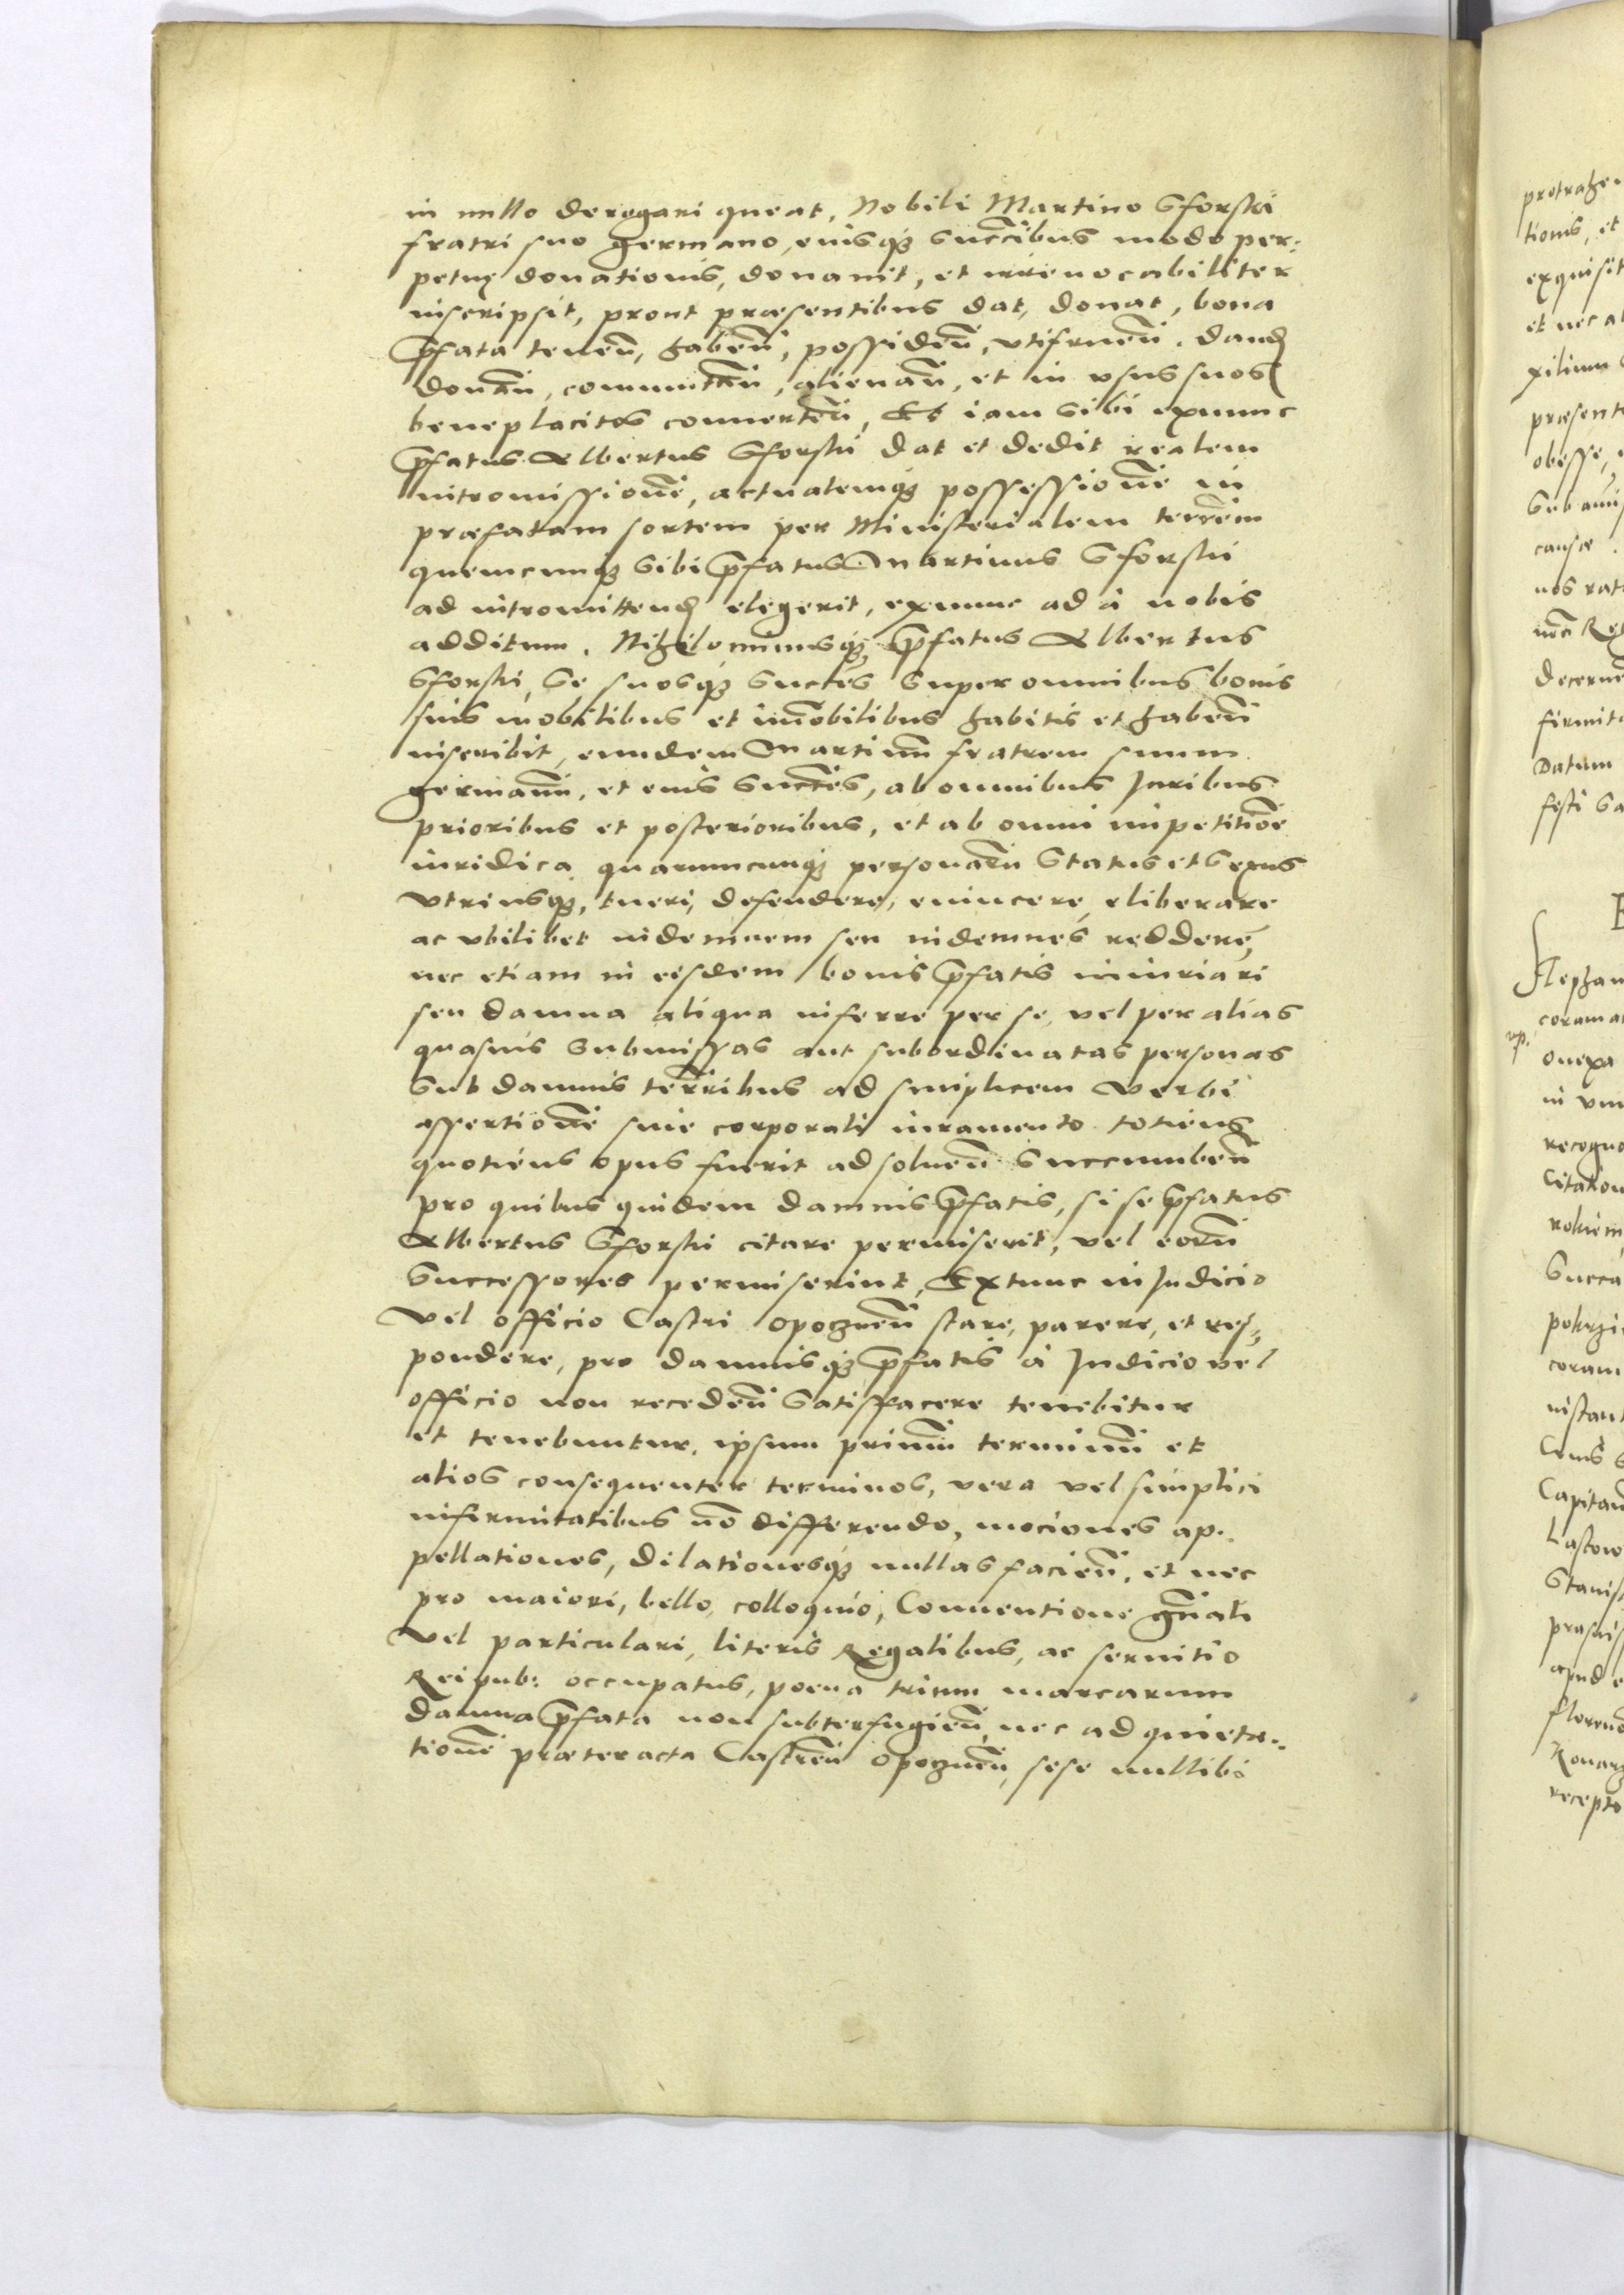 in nullo derogari queat, Nobili Martino Sforski
fratri suo germano, eiusq́ꝫ succ̃ibus modo per:
petuę donationis, donauit, et irreuocabiliter
inscripsit, prout præsentibus dat, donat, bona
p̃fata teneñ, habeñ, possideñ, vtifrueñ. dand
donañ, commutañ, alienañ, et in vsus suos
beneplacitos conuerteñ, Et iam sibi exnunc
p̃fatus Albertus Sforski dat et dedit realem
intromissionẽ, actualemq́ꝫ possessionẽ in
præfatam sortem per Ministerialem terrẽm
quemcunq́ꝫ sibi p̃fatus Martinus Sforski
ad intromittend elegerit, exnunc ad à nobis
additum. Nihilominusq́ꝫ p̃fatus Albertus
Sforski, se suosq́ꝫ succ̃es super omnibus bonis
suis mobilibus et im̃obilibus habitis et habeñ
inscribit, eundem Martinũ fratrem suum
germanũ, et eius succ̃es, ab omnibus Juribus
prioribus et posterioribus, et ab omni impetitiõe
iuridica quarumcunq́ꝫ personarũ status et sexus
vtriusq́ꝫ, tueri, defendere, euincere, eliberare
ac vbilibet indemnem seu indemnes reddere,
nec etiam in eisdem bonis p̃fatis iniuriari
seu damna aliqua inferre per se, vel per alias
quasuis submissas aut subordinatas personas
sub damnis terr̃ibus ad simplicem verbi
assertionẽ sine corporali iuramento totiens
quotiens opus fuerit ad solueñ succumbeñ
pro quibus quidem damnis p̃fatis, si se p̃fatus
Albertus Sforski citare permiserit, vel eorũ
successores permiserint, Extunc in Judicio
vel officio Castri Opoczneñ stare, parere, et res,
pondere, pro damnisq́ꝫ p̃fatis à Judicio vel
officio non recedeñ satisfacere tenebitur
et tenebuntur. ipsum primũ terminũ et
alios consequenter terminos, vera vel simplici
infirmitatibus nõ differendo, mociones ap:
pellationes, dilationesq́ꝫ nullas facieñ, et nec
pro maiori, bello, colloquio, Conuentione gñali
vel particulari, literis Regalibus, ac seruitio
Reipub: occupatus, poena trium marcarum
damna p̃fata non subterfugieñ, nec ad quieta:
tionẽ præter acta Castreñ Opoczneñ, sese nullibi
protrahe
tionis, et
exquisit
et nec a
xilium
præsent
obesse,
causæ
nos rat
decerne
firmit
Datum
festi Sa
coram a
in vnu
recogno
Citation
Succe
coram
instant
Capitan
Lascow
Stanis
apud
floreno
recepto